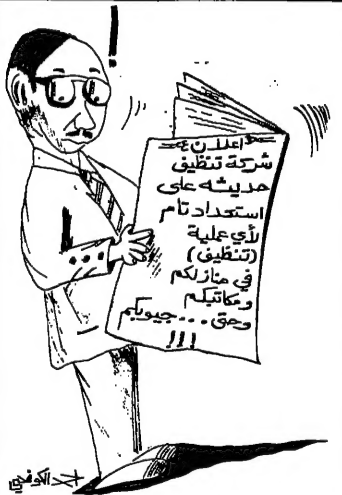 !
اعلان
شركة تنظيف
حديثه على
استعداد تام
لأي عملية
(تنظيف)
في منازلكم
ومكاتبكم
وحتى . . . جيوبكم
!!!